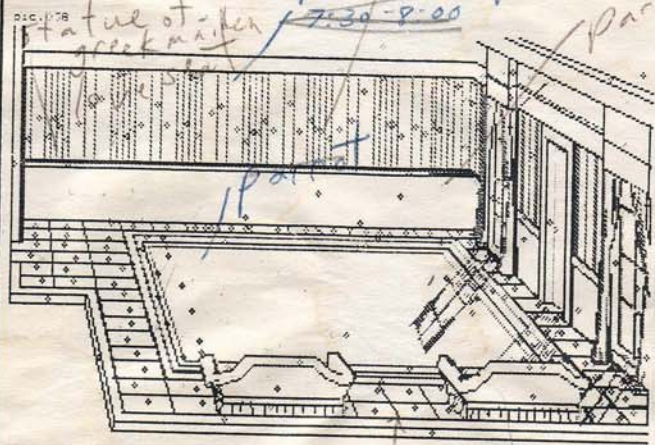 pic.058
statue of
greek maiden
love seat
7:30-8:00
par
parrot